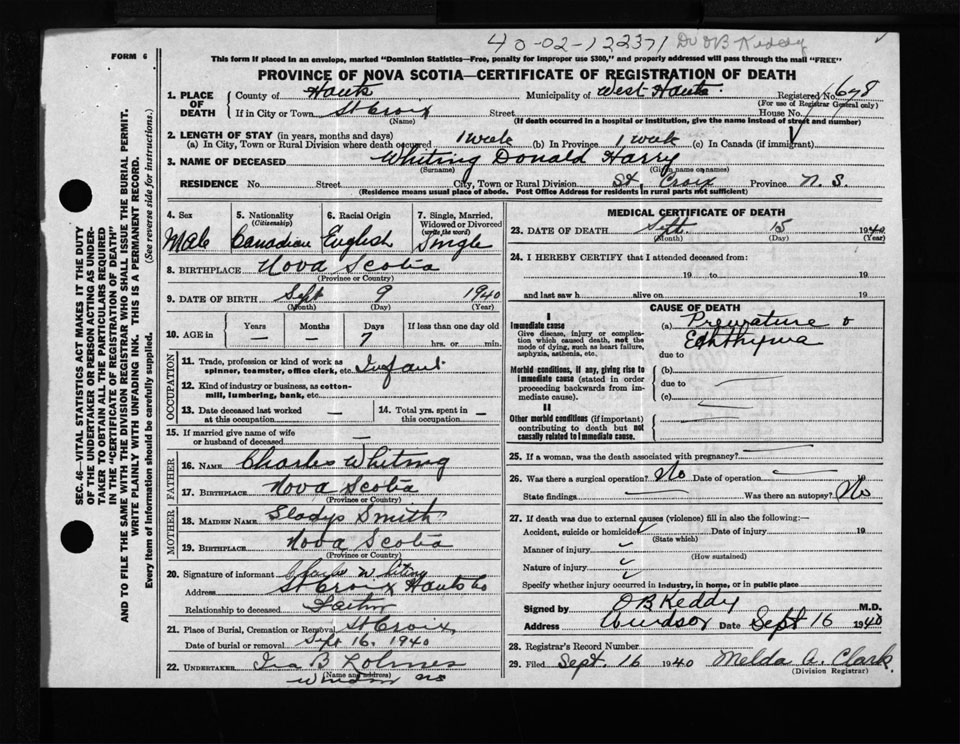 40-02-122371 Dr OB Keddy
FORM 6
This form if placed in an envelope, marked "Dominion Statistics—Free, penalty for improper use $300," and properly addressed will pass through the mail "FREE"
PROVINCE OF NOVA SCOTIA—CERTIFICATE OF REGISTRATION OF DEATH
1. PLACE OF DEATH
County of Hants Municipality of West Hants Registered No. 1678
(For use of Registrar General only)
If in City or Town St Croix Street House No.
(Name) (If death occurred in a hospital or institution, give the name instead of street and number)
2. LENGTH OF STAY (in years, months and days)
(a) In City, Town or Rural Division where death occurred 1 week (b) In Province 1 week (c) In Canada (if immigrant)
3. NAME OF DECEASED Whiting Donald Harry
(Surname) (Given name or names)
RESIDENCE No. Street City, Town or Rural Division St. Croix Province N. S.
(Residence means usual place of abode. Post Office Address for residents in rural parts not sufficient)
4. Sex Male
5. Nationality (Citizenship) Canadian
6. Racial Origin English
7. Single, Married, Widowed or Divorced (write the word) Single
8. BIRTHPLACE Nova Scotia
(Province or Country)
9. DATE OF BIRTH Sept 9 1940
(Month) (Day) (Year)
10. AGE in Years — Months — Days 7 If less than one day old hrs. or min.
OCCUPATION
11. Trade, profession or kind of work as spinner, teamster, office clerk, etc. Infant
12. Kind of industry or business, as cotton-mill, lumbering, bank, etc.
13. Date deceased last worked at this occupation —
14. Total yrs. spent in this occupation —
15. If married give name of wife or husband of deceased —
FATHER
16. NAME Charles Whiting
17. BIRTHPLACE Nova Scotia
(Province or Country)
MOTHER
18. MAIDEN NAME Gladys Smith
19. BIRTHPLACE Nova Scotia
(Province or Country)
20. Signature of informant Charles Whiting
Address St Croix Hants Co
Relationship to deceased Father
21. Place of Burial, Cremation or Removal St Croix,
Date of burial or removal Sept 16. 1940
22. UNDERTAKER Ira B Lohnes
(Name and address) Windsor NS
MEDICAL CERTIFICATE OF DEATH
23. DATE OF DEATH Sept 15 1940
(Month) (Day) (Year)
24. I HEREBY CERTIFY that I attended deceased from:
19 to 19
and last saw h alive on 19
CAUSE OF DEATH
I
Immediate cause
Give disease, injury or complication which caused death, not the mode of dying, such as heart failure, asphyxia, asthenia, etc.
(a) Premature &
due to
Morbid conditions, if any, giving rise to immediate cause (stated in order proceeding backwards from immediate cause).
(b)
due to
(c)
II
Other morbid conditions (if important) contributing to death but not causally related to immediate cause.
25. If a woman, was the death associated with pregnancy?
26. Was there a surgical operation? No Date of operation 19
State findings Was there an autopsy? No
27. If death was due to external causes (violence) fill in also the following:—
Accident, suicide or homicide Date of injury 19
(State which)
Manner of injury
(How sustained)
Nature of injury
Specify whether injury occurred in industry, in home, or in public place
Signed by O B Keddy M.D.
Address Windsor Date Sept 16 1940
28. Registrar's Record Number
29. Filed Sept. 16 1940 Melda A. Clark
(Division Registrar)
SEC. 46—VITAL STATISTICS ACT MAKES IT THE DUTY
OF THE UNDERTAKER OR PERSON ACTING AS UNDER-
TAKER TO OBTAIN ALL THE PARTICULARS REQUIRED
IN THE "CERTIFICATE OF REGISTRATION OF DEATH"
AND TO FILE THE SAME WITH THE DIVISION REGISTRAR WHO SHALL ISSUE THE BURIAL PERMIT.
WRITE PLAINLY WITH UNFADING INK. THIS IS A PERMANENT RECORD.
Every item of information should be carefully supplied. (See reverse side for instructions.)